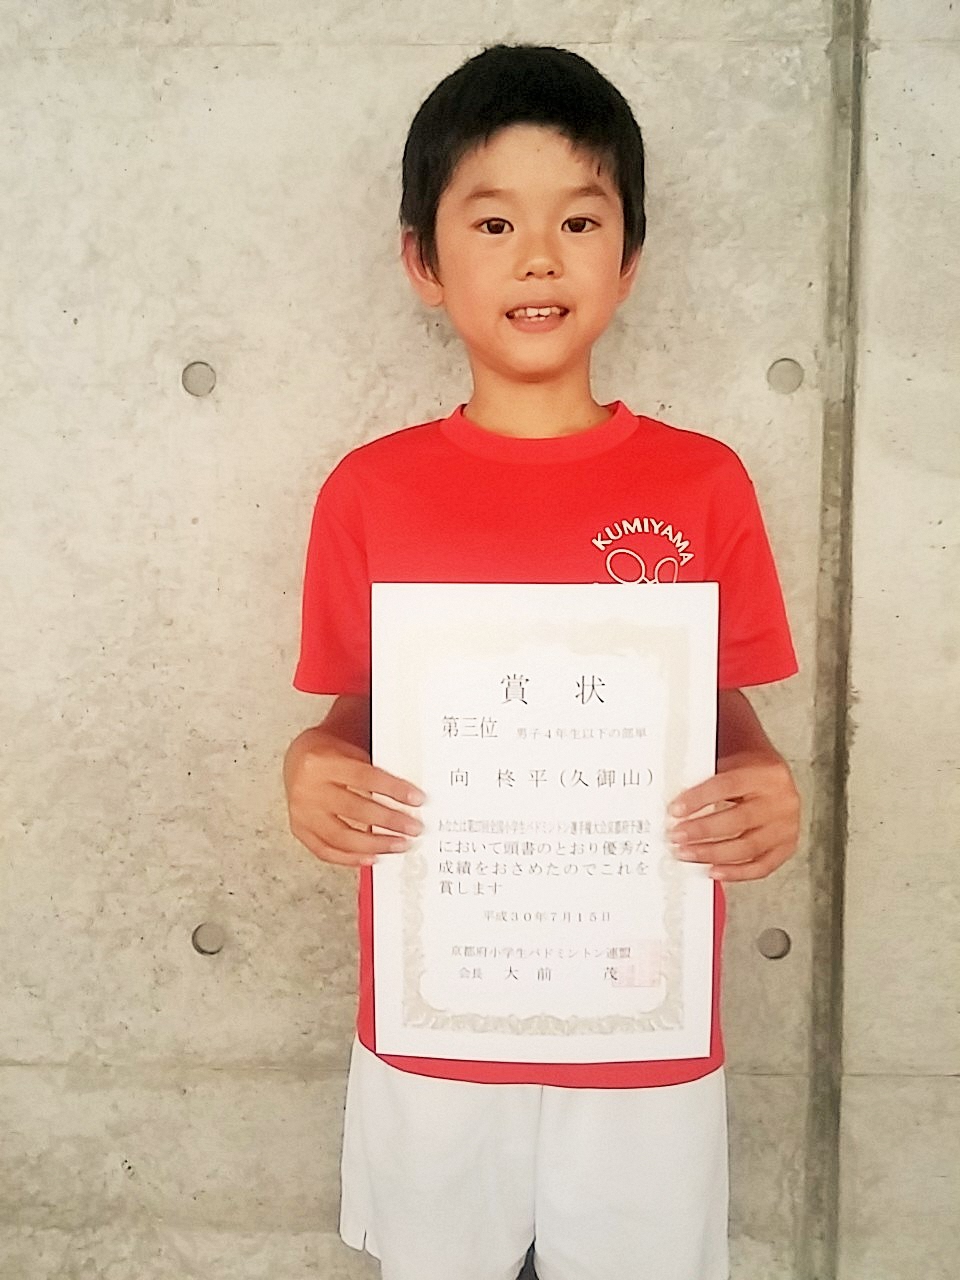 KUMIYAMA
賞 状
第三位 男子4年生以下の部単
向 柊 平 (久御山)
あなたは第27回全国小学生バドミントン選手権大会京都府予選会
において頭書のとおり優秀な
成績をおさめたのでこれを
賞します
平成30年7月15日
京都府小学生バドミントン連盟
会長 大 前 茂